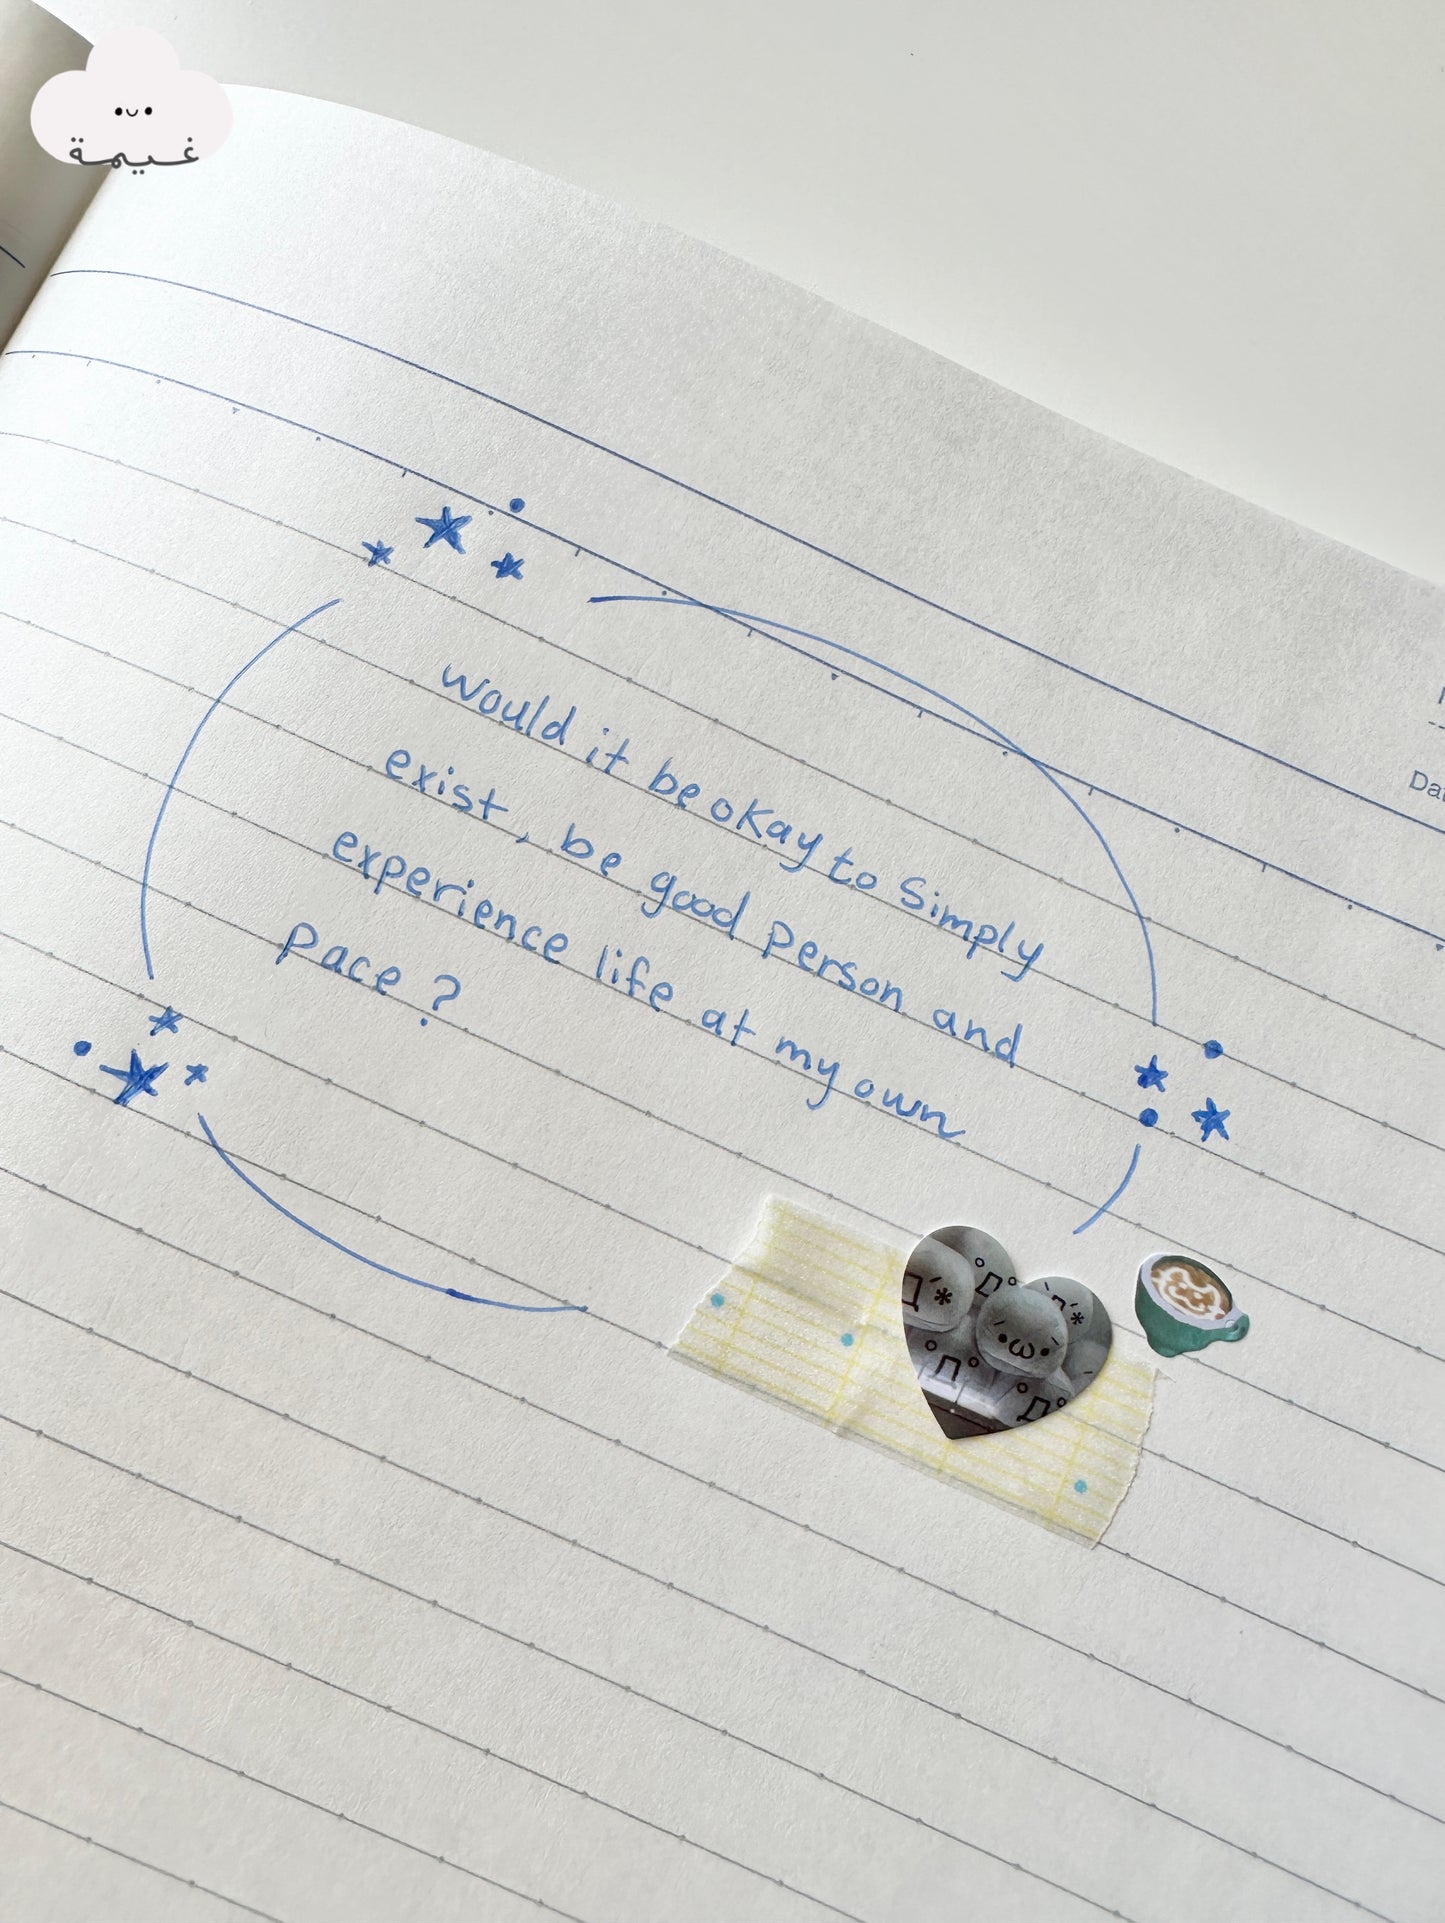 غيمة
would it be okay to simply
exist, be good person and
experience life at my own
pace ?